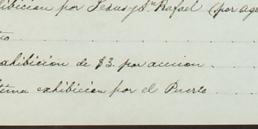 hibicion por Jesus y Sn Rafael (por ag
to
xhibicion de $3. por accion
tima exhibicion por el Puerto